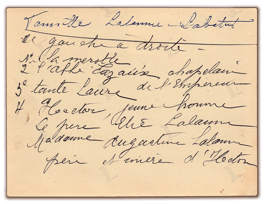 Famille Lalanne - Labatut
de gauche à droite -
N° 1 la
2 l'abbé Cazaux chapelain
de l'Empereur
3° tante Laure
4 Hector, jeune homme
le père Elie Lalanne
Madame Augustine Lalanne
père et mère d'Hector